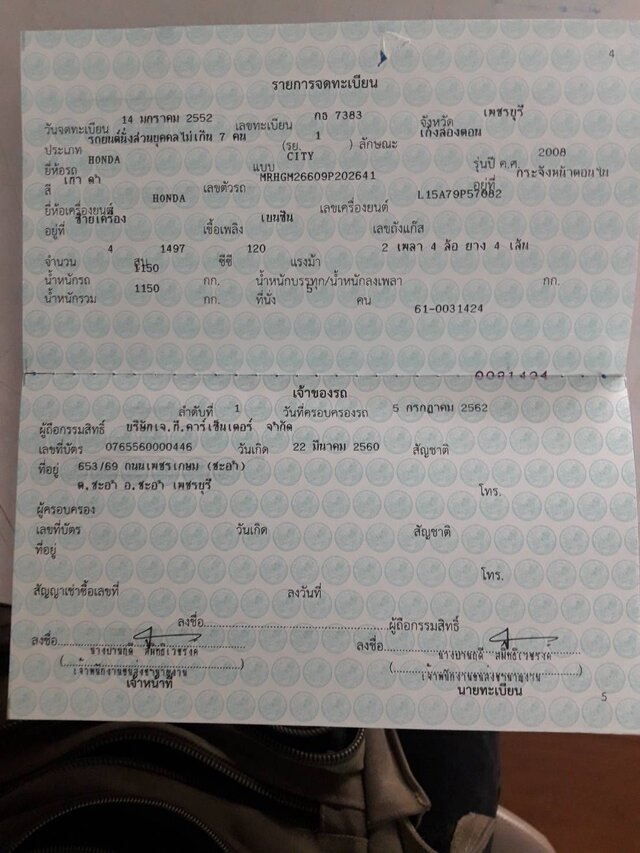 4
รายการจดทะเบียน
วันจดทะเบียน 14 มกราคม 2552 เลขทะเบียน กธ 7383 จังหวัด เพชรบุรี
ประเภท รถยนต์นั่งส่วนบุคคลไม่เกิน 7 คน (รย. 1 ) ลักษณะ เก๋งสองตอน
ยี่ห้อรถ HONDA แบบ CITY รุ่นปี ค.ศ. 2008
สี เทา ดำ เลขตัวรถ MRHGM26609P202641 อยู่ที่ กระจังหน้าตอนใน
ยี่ห้อเครื่องยนต์ HONDA เลขเครื่องยนต์ L15A79P57082
อยู่ที่ ซ้ายเครื่อง เชื้อเพลิง เบนซิน เลขถังแก๊ส
จำนวน 4 สูบ 1497 ซีซี 120 แรงม้า 2 เพลา 4 ล้อ ยาง 4 เส้น
น้ำหนักรถ 1150 กก. น้ำหนักบรรทุก/น้ำหนักลงเพลา กก.
น้ำหนักรวม 1150 กก. ที่นั่ง 5 คน
61-0031424
0031424
เจ้าของรถ
ลำดับที่ 1 วันที่ครอบครองรถ 5 กรกฎาคม 2562
ผู้ถือกรรมสิทธิ์ บริษัทเจ.ที.คาร์เซ็นเตอร์ จำกัด
เลขที่บัตร 0765560000446 วันเกิด 22 มีนาคม 2560 สัญชาติ
ที่อยู่ 653/69 ถนนเพชรเกษม (ชะอำ)
ต.ชะอำ อ.ชะอำ เพชรบุรี
โทร.
ผู้ครอบครอง
เลขที่บัตร วันเกิด สัญชาติ
ที่อยู่
โทร.
สัญญาเช่าซื้อเลขที่ ลงวันที่
ลงชื่อ ผู้ถือกรรมสิทธิ์
ลงชื่อ ลงชื่อ
เจ้าพนักงานขนส่งชำนาญงาน เจ้าพนักงานขนส่งชำนาญงาน
เจ้าหน้าที่ นายทะเบียน
5